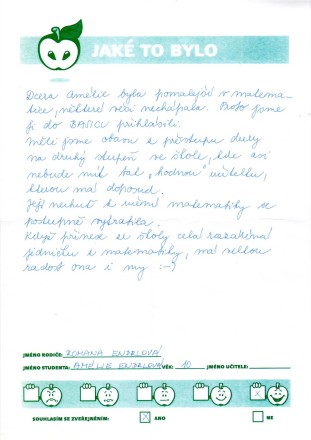 JAKÉ TO BYLO
Dcera Amélie byla pomalejší v matema-
tice, některé věci nechápala. Proto jsme
ji do BASICu přihlásili.
Měli jsme obavu z přestupu dcery
na druhý stupeň ve škole, kde asi
nebude mít tak "hodnou" učitelku,
kterou má doposud.
Její nechuť k učení matematiky se
postupně vytratila.
Když přinese ze školy celá rozzářená
jedničku z matematiky, má velkou
radost ona i my :-)
JMÉNO RODIČE: ROMANA ENDRLOVÁ
JMÉNO STUDENTA: AMÉLIE ENDRLOVÁ VĚK: 10 JMÉNO UČITELE:
SOUHLASÍM SE ZVEŘEJNĚNÍM: X ANO NE